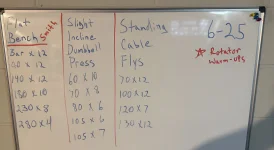 Flat
Bench Smith
Bar x 12
140 x 12
180 x 10
230 x 8
280 x 4
Slight
Incline
Dumbbell
Press
60 x 10
70 x 8
80 x 6
105 x 6
105 x 7
Standing
Cable
Flys
70 x 12
100 x 12
120 x 7
130 x 12
6-25
Rotator
Warm-ups